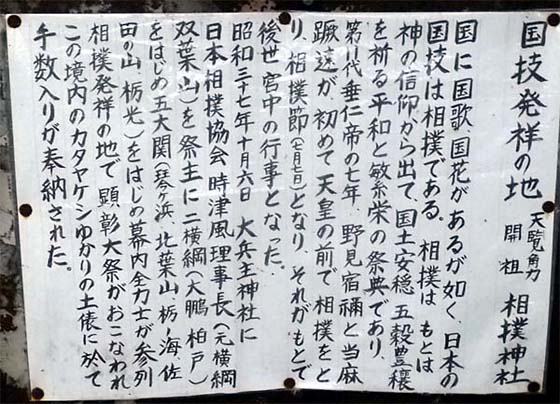 国技発祥の地 天覧角力開祖 相撲神社
国に国歌、国花があるが如く、日本の
国技は相撲である。相撲は もとは
神の信仰から出て、国土安穏 五穀豊穣
を祈る平和と敏繁栄の祭典であり、
第11代垂仁帝の七年、野見宿禰と当麻
蹶速が、初めて天皇の前で相撲をと
り、相撲節(七月七日)となり、それがもとで
後世 宮中の行事となった。
昭和三十七年十月六日 大兵主神社に
日本相撲協会 時津風理事長(元横綱
双葉山)を祭主に二横綱(大鵬 柏戸)
をはじめ五大関(琴ヶ浜、北葉山、栃ノ海、佐
田の山、栃光)をはじめ幕内全力士が参列
相撲発祥の地で、顕彰大祭がおこなわれ
この境内のカタヤケシゆかりの土俵に於て
手数入りが奉納された。